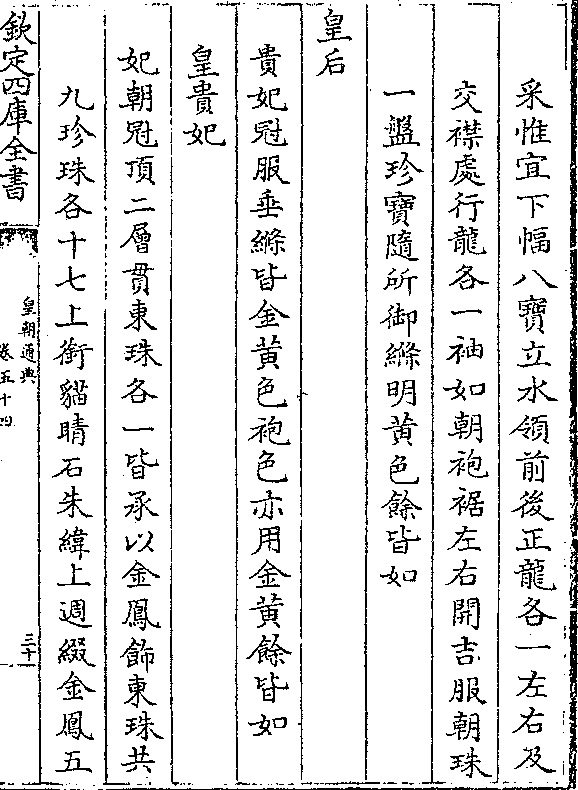 采惟宜下幅八寶立水領前後正龍各一左右及
交襟處行龍各一袖如朝袍裾左右開吉服朝珠
一盤珍寶隨所御絛明黃色餘皆如
皇后
貴妃冠服垂絛皆金黃色袍色亦用金黃餘皆如
皇貴妃
妃朝冠頂二層貫東珠各一皆承以金鳳飾東珠共
九珍珠各十七上銜貓睛石朱緯上週綴金鳳五
欽定四庫全書
皇朝通典
卷五十四
三十